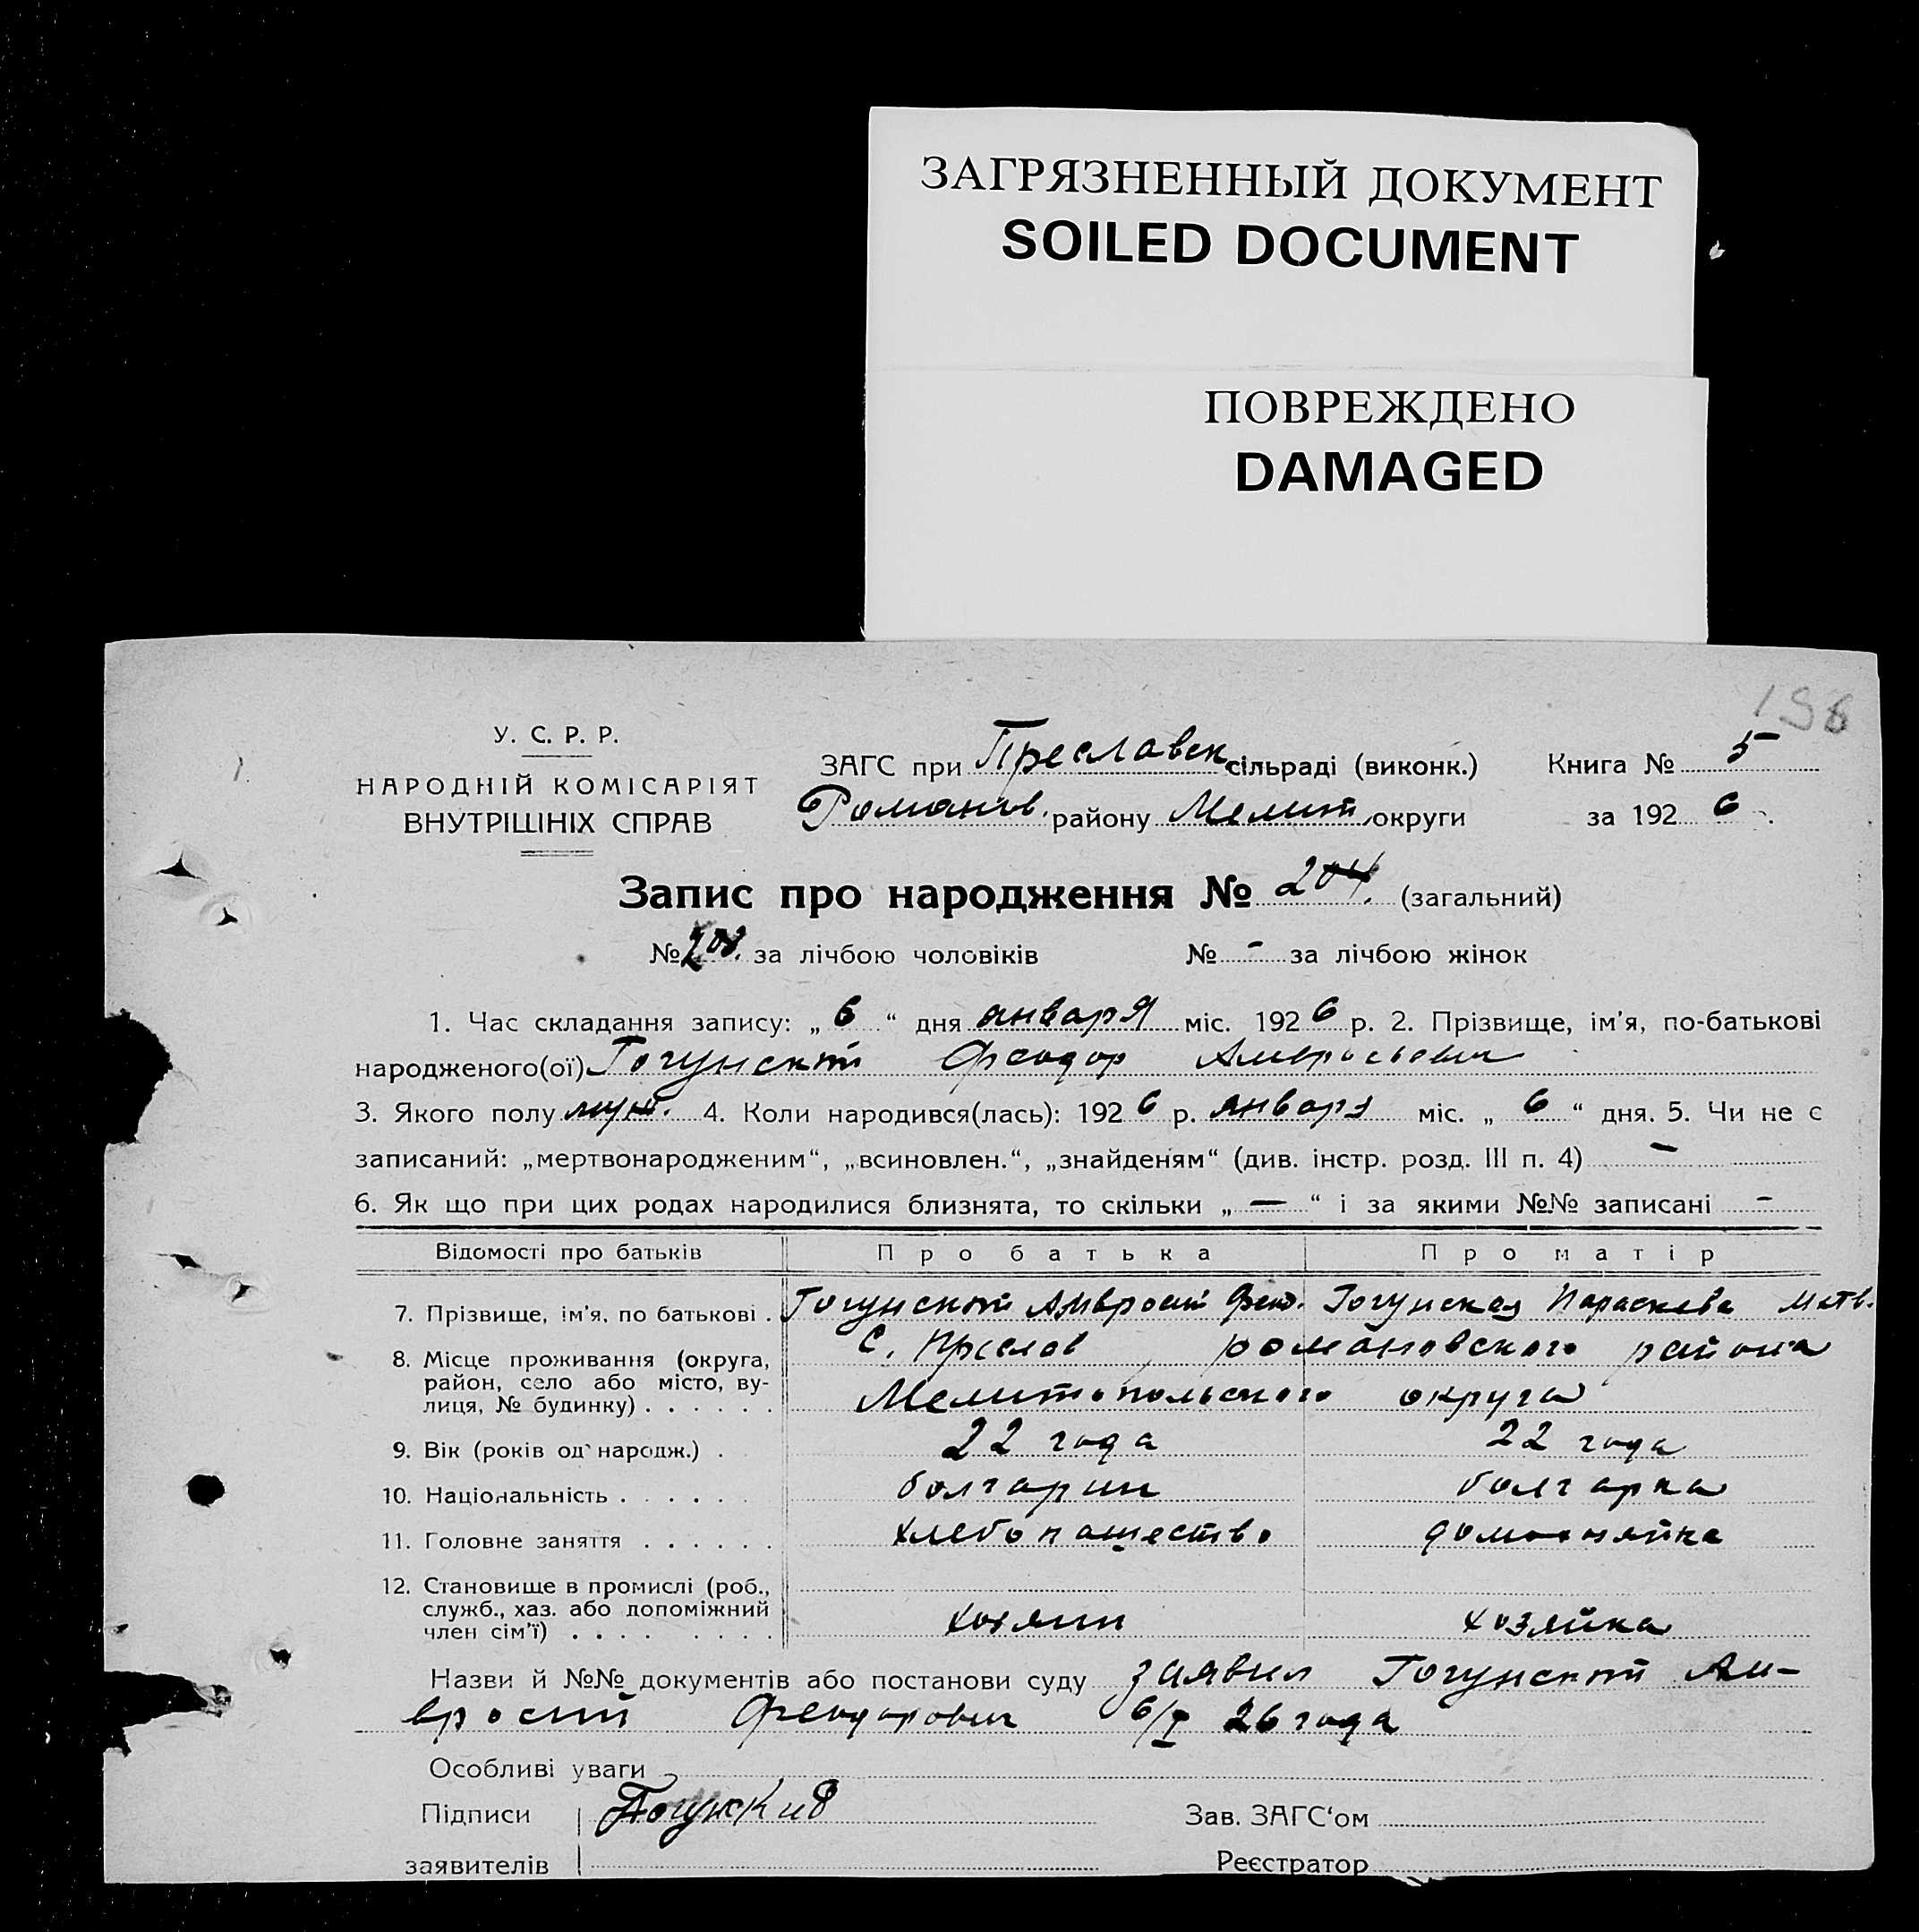 ЗАГРЯЗНЕННЫЙ ДОКУМЕНТ
SOILED DOCUMENT
ПОВРЕЖДЕНО
DAMAGED
У. С. Р. Р.
НАРОДНІЙ КОМІСАРІЯТ
ВНУТРІШНІХ СПРАВ
ЗАГС при Преславск сільраді (виконк.) Книга № 5
Романов. району Мелит округи за 1926.
Запис про народження № 204. (загальний)
№ за лічбою чоловіків № - за лічбою жінок
1. Час складання запису: „6“ дня января міс. 1926 р. 2. Прізвище, ім'я, по-батькові
народженого(ої) Гогунский Феодор Амвросьевич
3. Якого полу муж. 4. Коли народився(лась): 1926 р. января міс. „6“ дня. 5. Чи не є
записаний: „мертвонародженим“, „всиновлен.“, „знайденям“ (див. інстр. розд. III п. 4) —
6. Як що при цих родах народилися близнята, то скільки „—“ і за якими №№ записані -
Відомості про батьків Про батька Про матір
7. Прізвище, ім'я, по батькові . Гогунский Амвросий Феод. Гогунская Параскева Матв.
8. Місце проживання (округа, район, село або місто, вулиця, № будинку) . . . . . . С. Преслав, романовского района
Мелитопольского округа
9. Вік (років од народж.) . 22 года 22 года
10. Національність . . . . . . болгарин болгарка
11. Головне заняття . . . . . . хлебопашество домохозяйка
12. Становище в промислі (роб., служб., хаз. або допоміжний член сім'ї) . . . . . . . . хозяин хозяйка
Назви й №№ документів або постанови суду заявил Гогунский Ам-
вросий Феодорович 6/I 26 года
Особливі уваги
Підписи Зав. ЗАГС'ом
заявителів Реєстратор